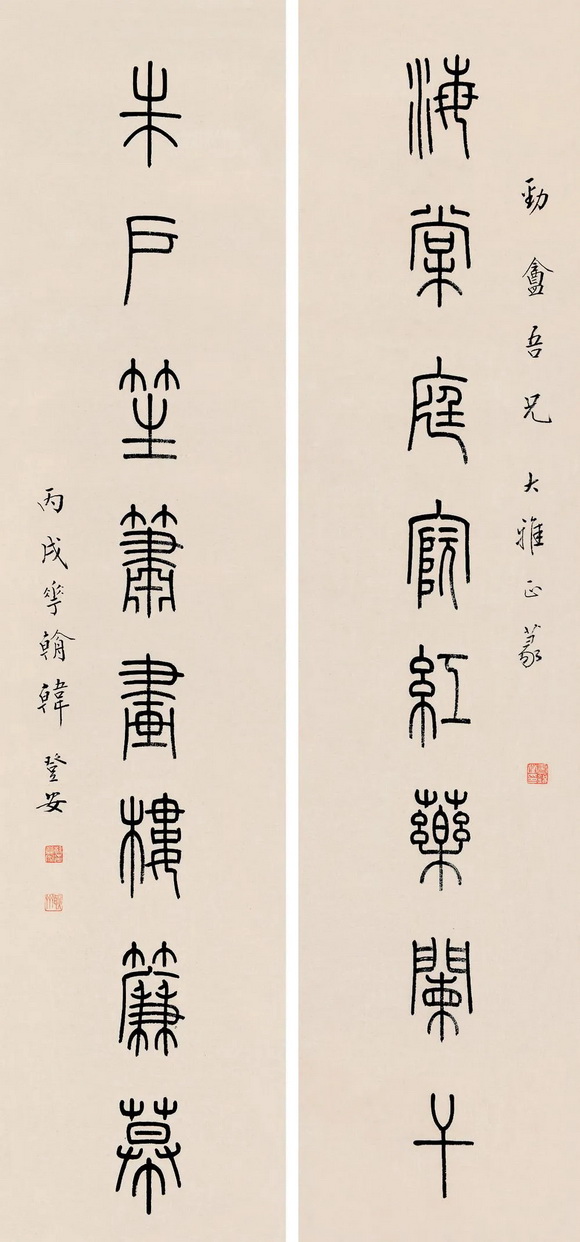 勁盦吾兄大雅正篆
海棠庭院紅藥闌干
朱戶笙簫畫樓簾幕
丙戌翰韓登安